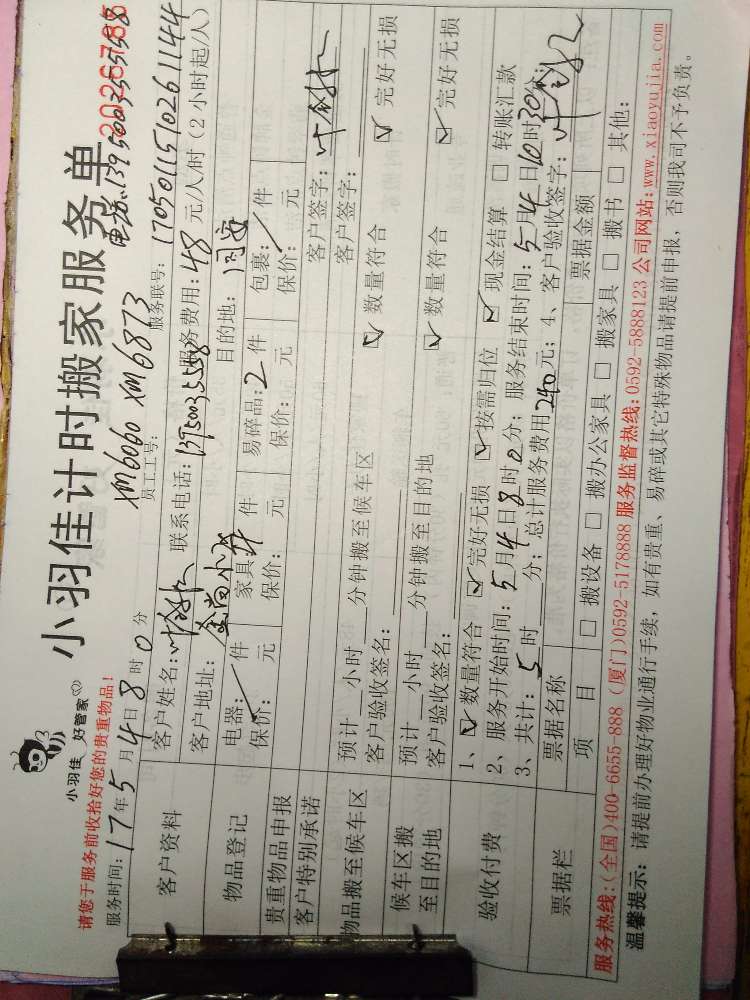 小羽佳 好管家
小羽佳计时搬家服务单
2026785
请您于服务前收拾好您的贵重物品!
XM6060 XM6873
服务时间:17年5月4日8时0分 员工工号: 服务联号:1705011510261144
客户资料
客户姓名: 联系电话:13950035558 服务费用:48元/人/时(2小时起/人)
客户地址:金尚小区 目的地:同安
物品登记
电器:/件 家具 件 易碎品:2件 包裹:/件
保价: 元 保价: 元 保价: 元 保价: 元
贵重物品申报
客户特别承诺
客户签字:
物品搬至候车区
预计 小时 分钟搬至候车区 客户签字:
客户验收签名: ☑数量符合 ☑完好无损
候车区搬至目的地
预计 小时 分钟搬至目的地
客户验收签名: ☑数量符合 ☑完好无损
验收付费
1、☑数量符合 ☑完好无损 ☑按需归位 ☑现金结算 □转账汇款
2、服务开始时间:5月4日8时0分;服务结束时间:5月4日10时30分;
3、共计:5时 分;总计服务费用240元;4、客户验收签字:
票据栏
票据名称 票据金额
项 目 □搬设备 □搬办公家具 □搬家具 □搬书 □其他:
服务热线:(全国)400-6655-888 (厦门)0592-5178888 服务监督热线:0592-5888123 公司网站:www.xiaoyujia.com
温馨提示:请提前办理好物业通行手续,如有贵重、易碎或其它特殊物品请提前申报,否则我司不予负责。